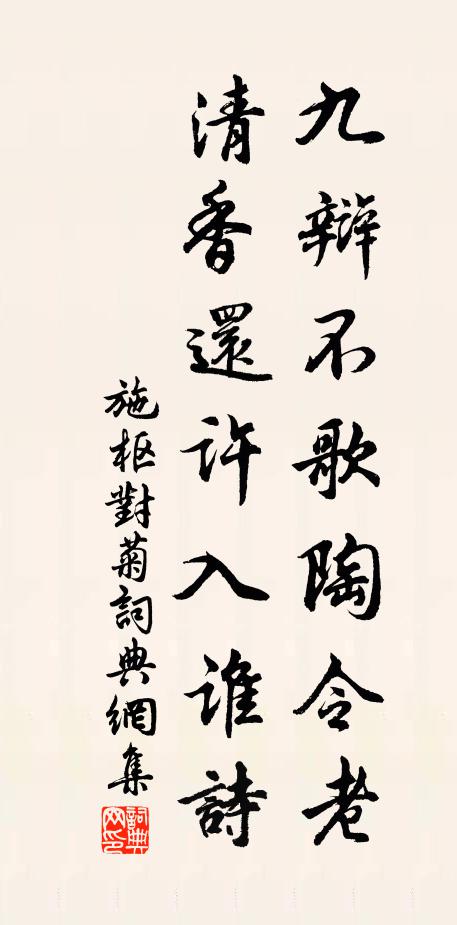 九辯不歌陶令老
清香還許入誰詩
施枢對菊詞典網集
詞典网印